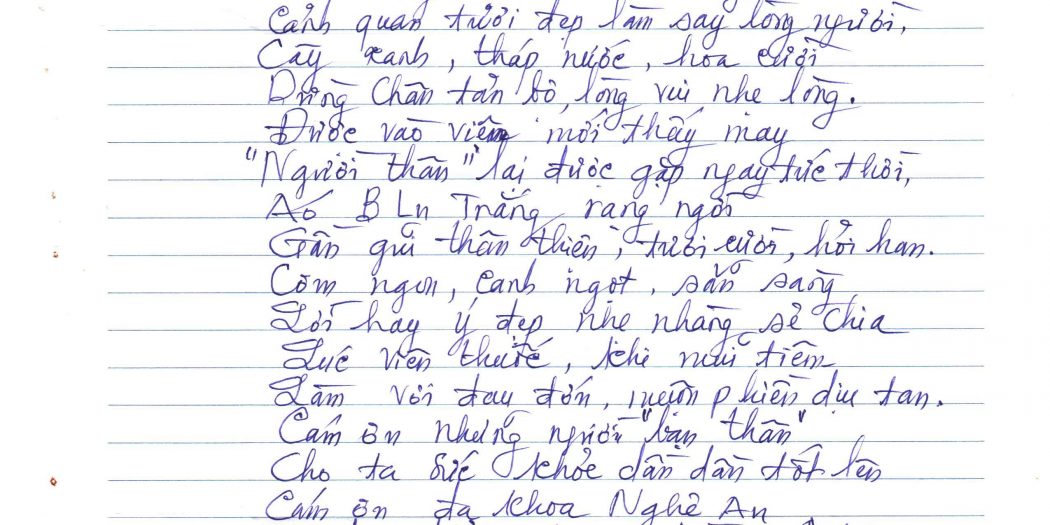 Cảnh quan tươi đẹp làm say lòng người,
Cây xanh, tháp nước, hoa cười
Dừng Chân tản bộ, lòng vui nhẹ lòng.
Được vào viện mới thấy may
"Người thân" lại được gặp ngay tức thời,
Áo BLu Trắng rạng ngời
Gần gũi thân thiện, tươi cười, hỏi han.
Cơm ngon, canh ngọt, sẵn sàng
Lời hay ý đẹp nhẹ nhàng sẻ chia
Lúc viên thuốc, khi mũi tiêm
Làm vơi đau đớn, muộn phiền dịu tan.
Cám ơn những người "bạn thân"
Cho ta sức khỏe dần dần tốt lên
Cám ơn đa khoa Nghệ An